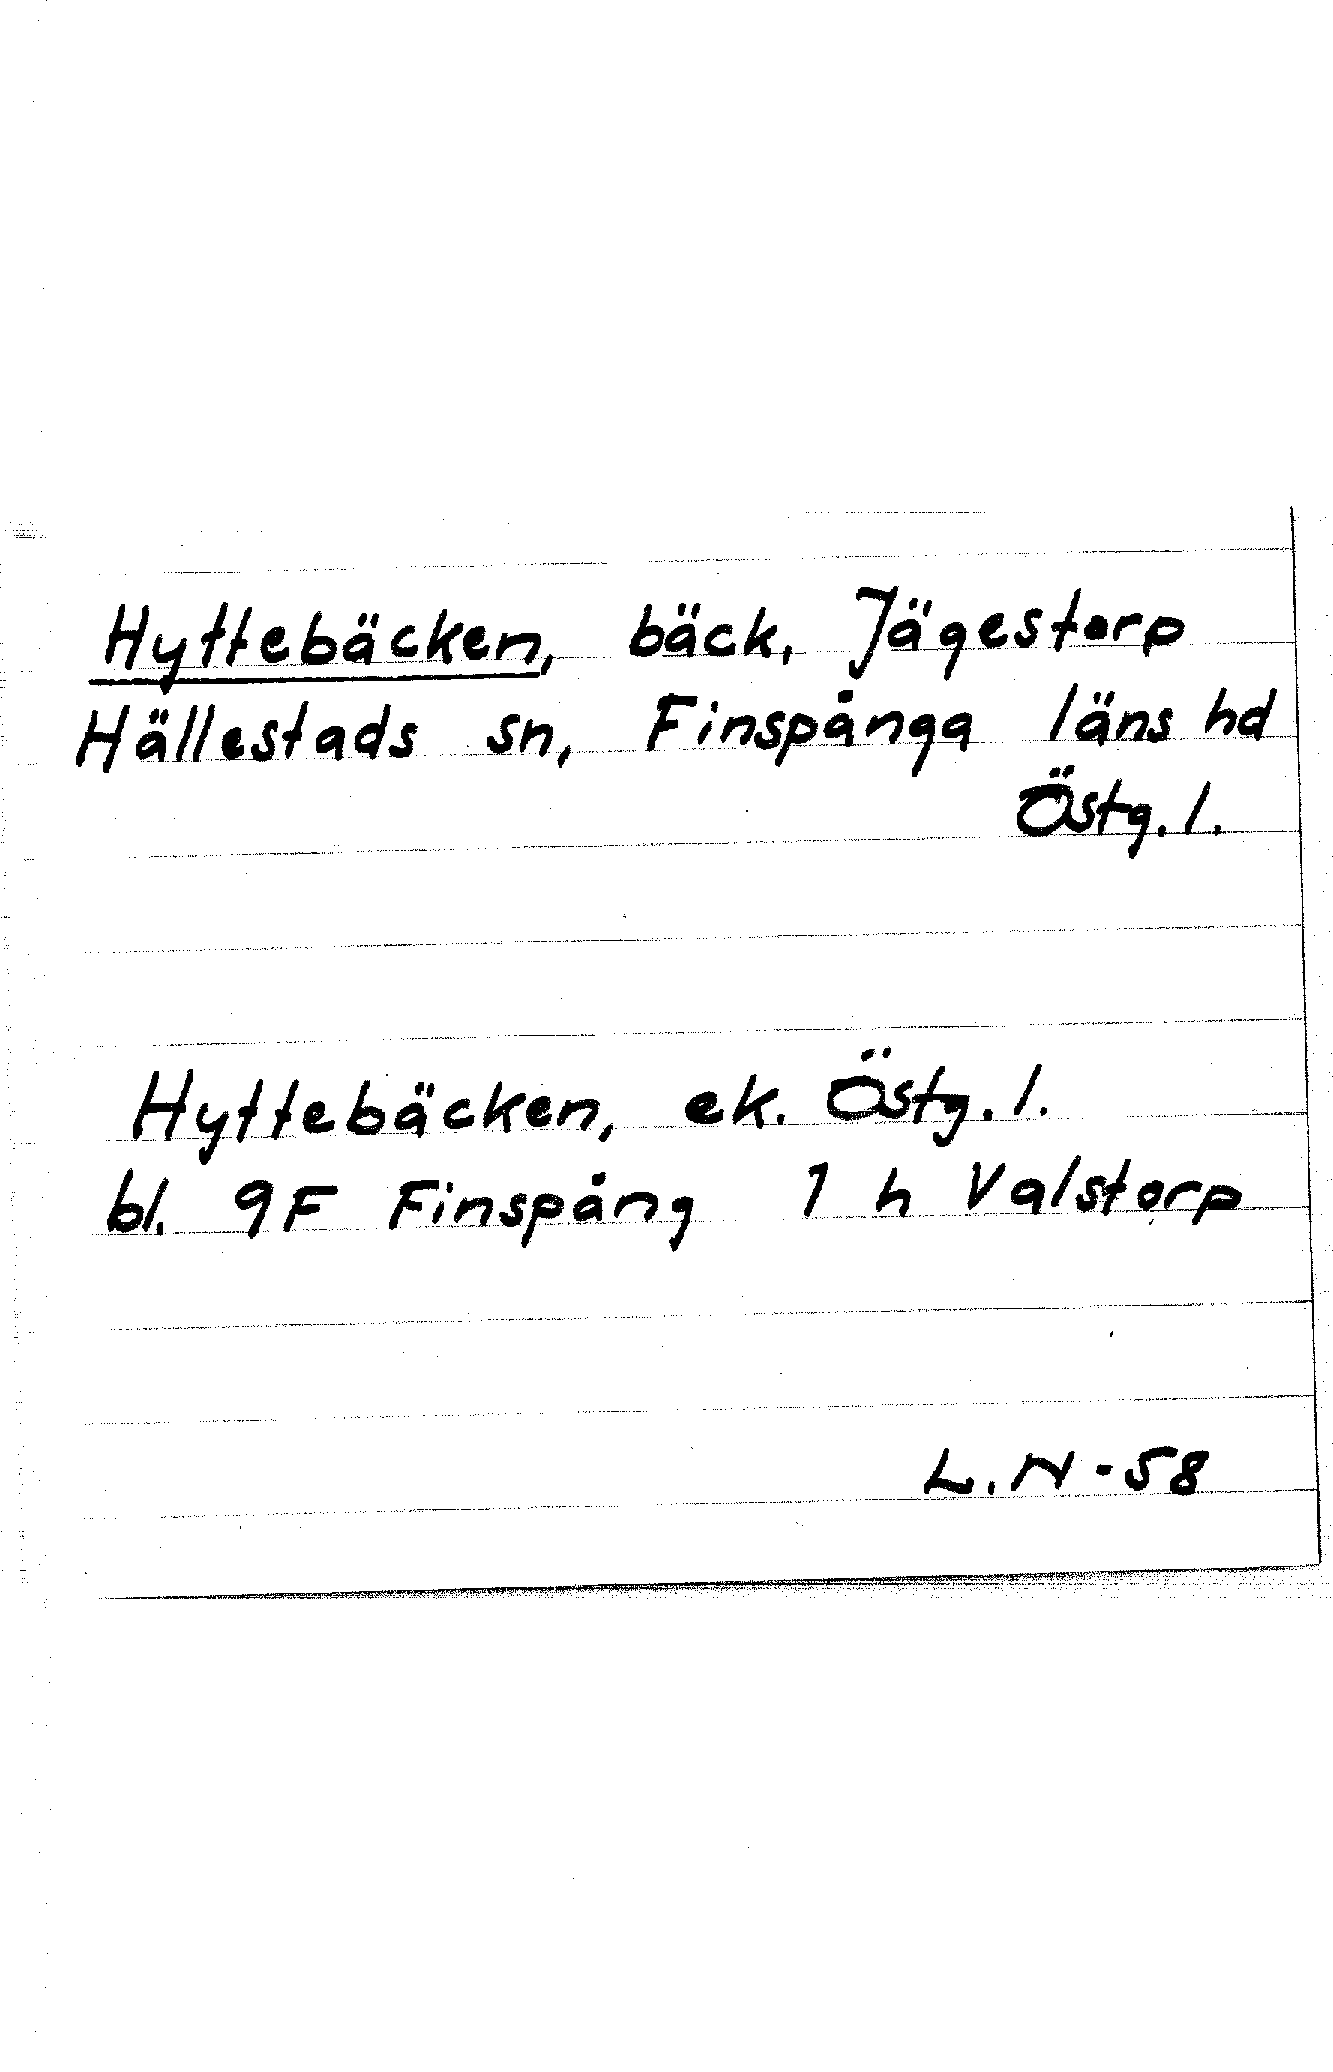 Hyttebäcken, bäck, Jägestorp
Hällestads sn, Finspånga läns hd
Östg. l.
Hyttebäcken, ek. Östg. l.
bl. 9F Finspång 1 h Valstorp
L. N - 58